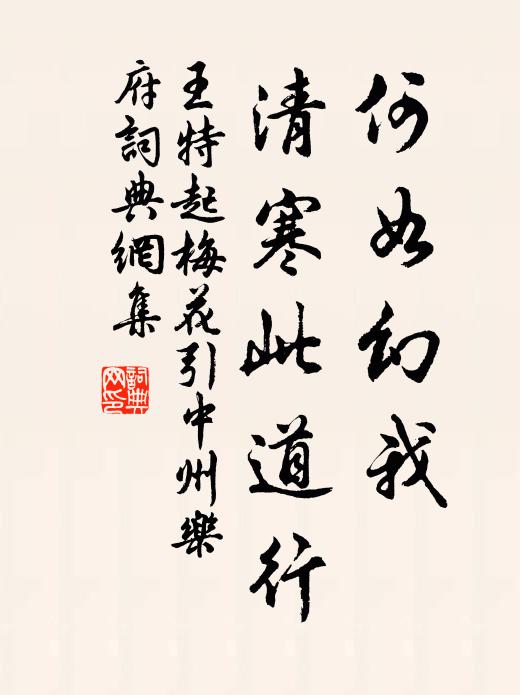 何如幻我
清寒此道行
王特起梅花引中州樂
府詞典網集
詞典